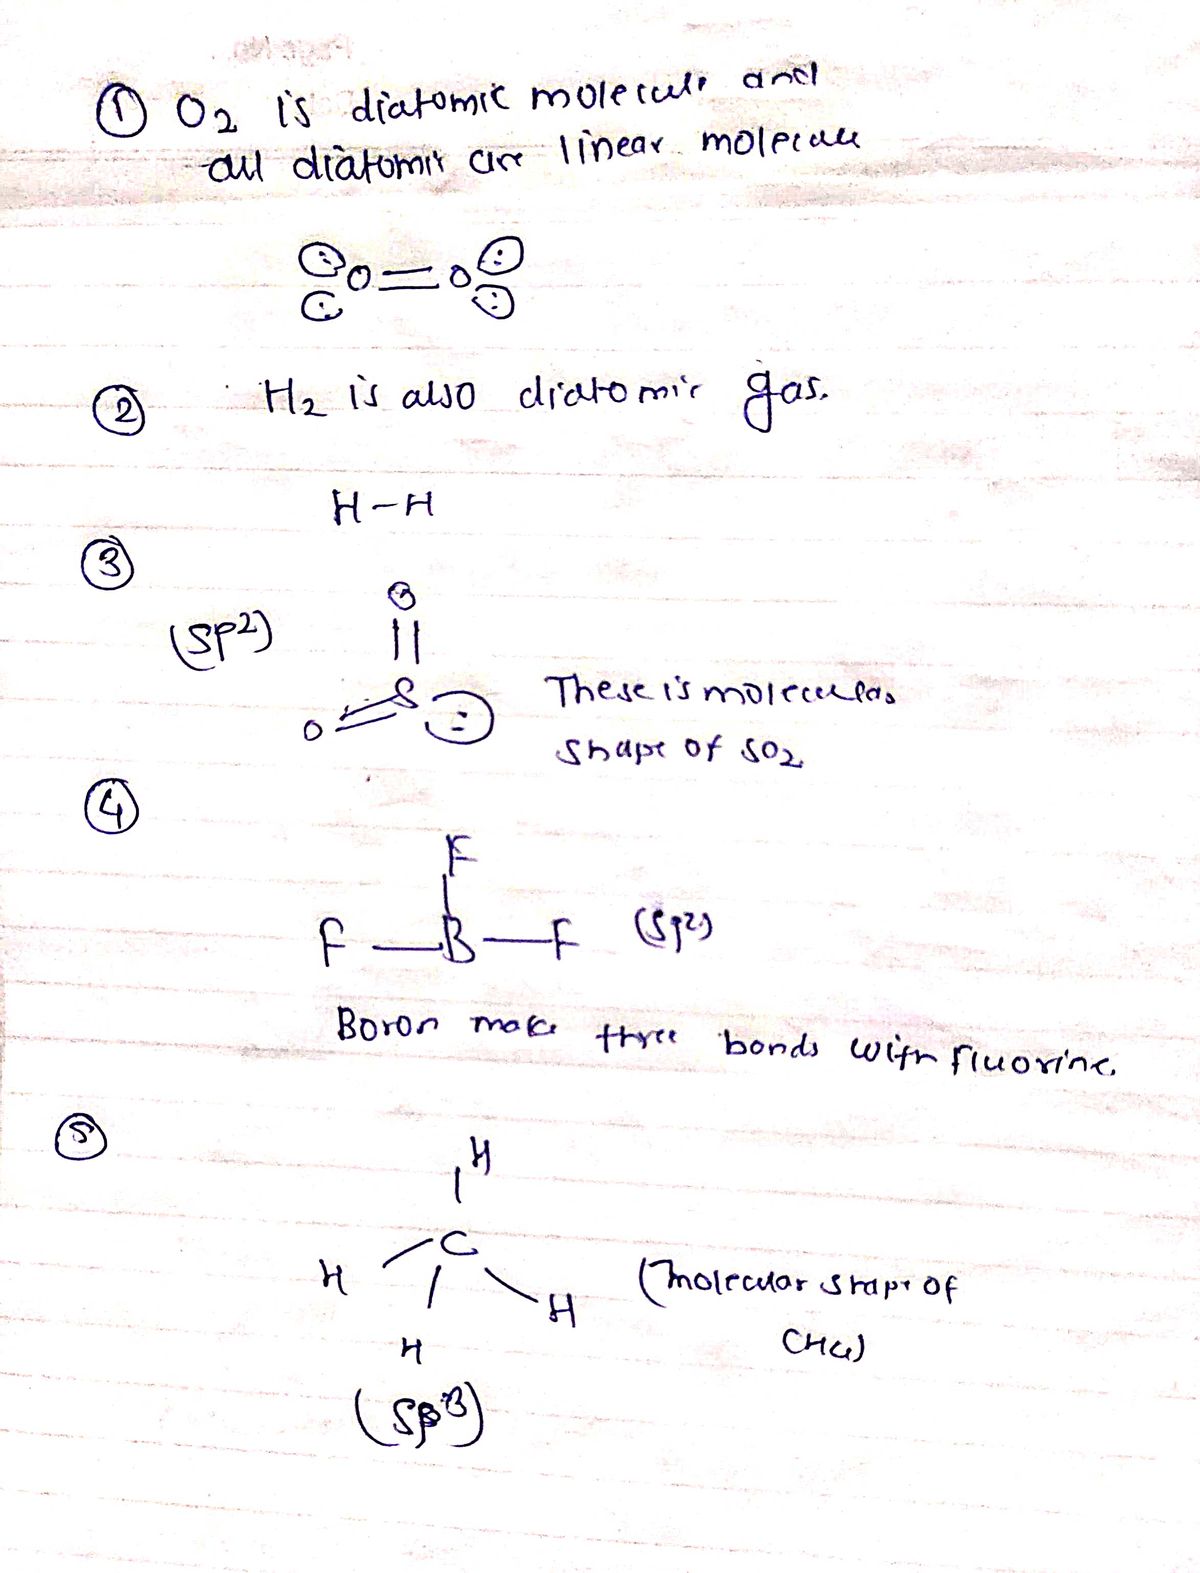 ① O2 is diatomic molecule and
all diatomic are linear molecule
O=O
② H2 is also diatomic gas.
H-H
③
O
(sp2)
S
O
These is molecular
shape of SO2
④
F
F - B - F (sp2)
Boron make three bonds with fluorine.
⑤
H
C
H
H
(molecular shape of
CH4)
H
(sp3)